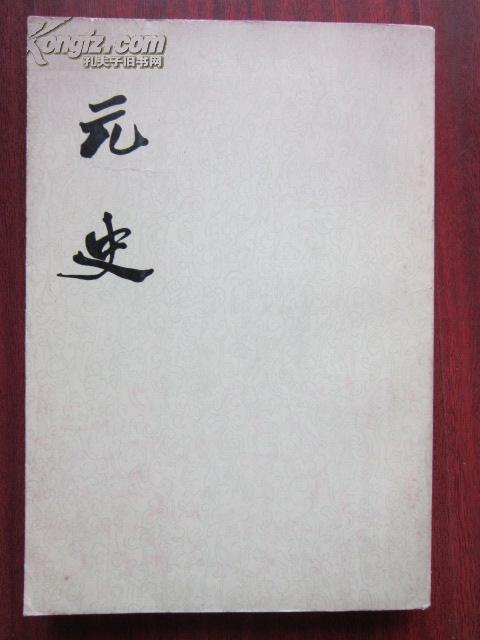 Kongfz.com
孔夫子旧书网
元
史